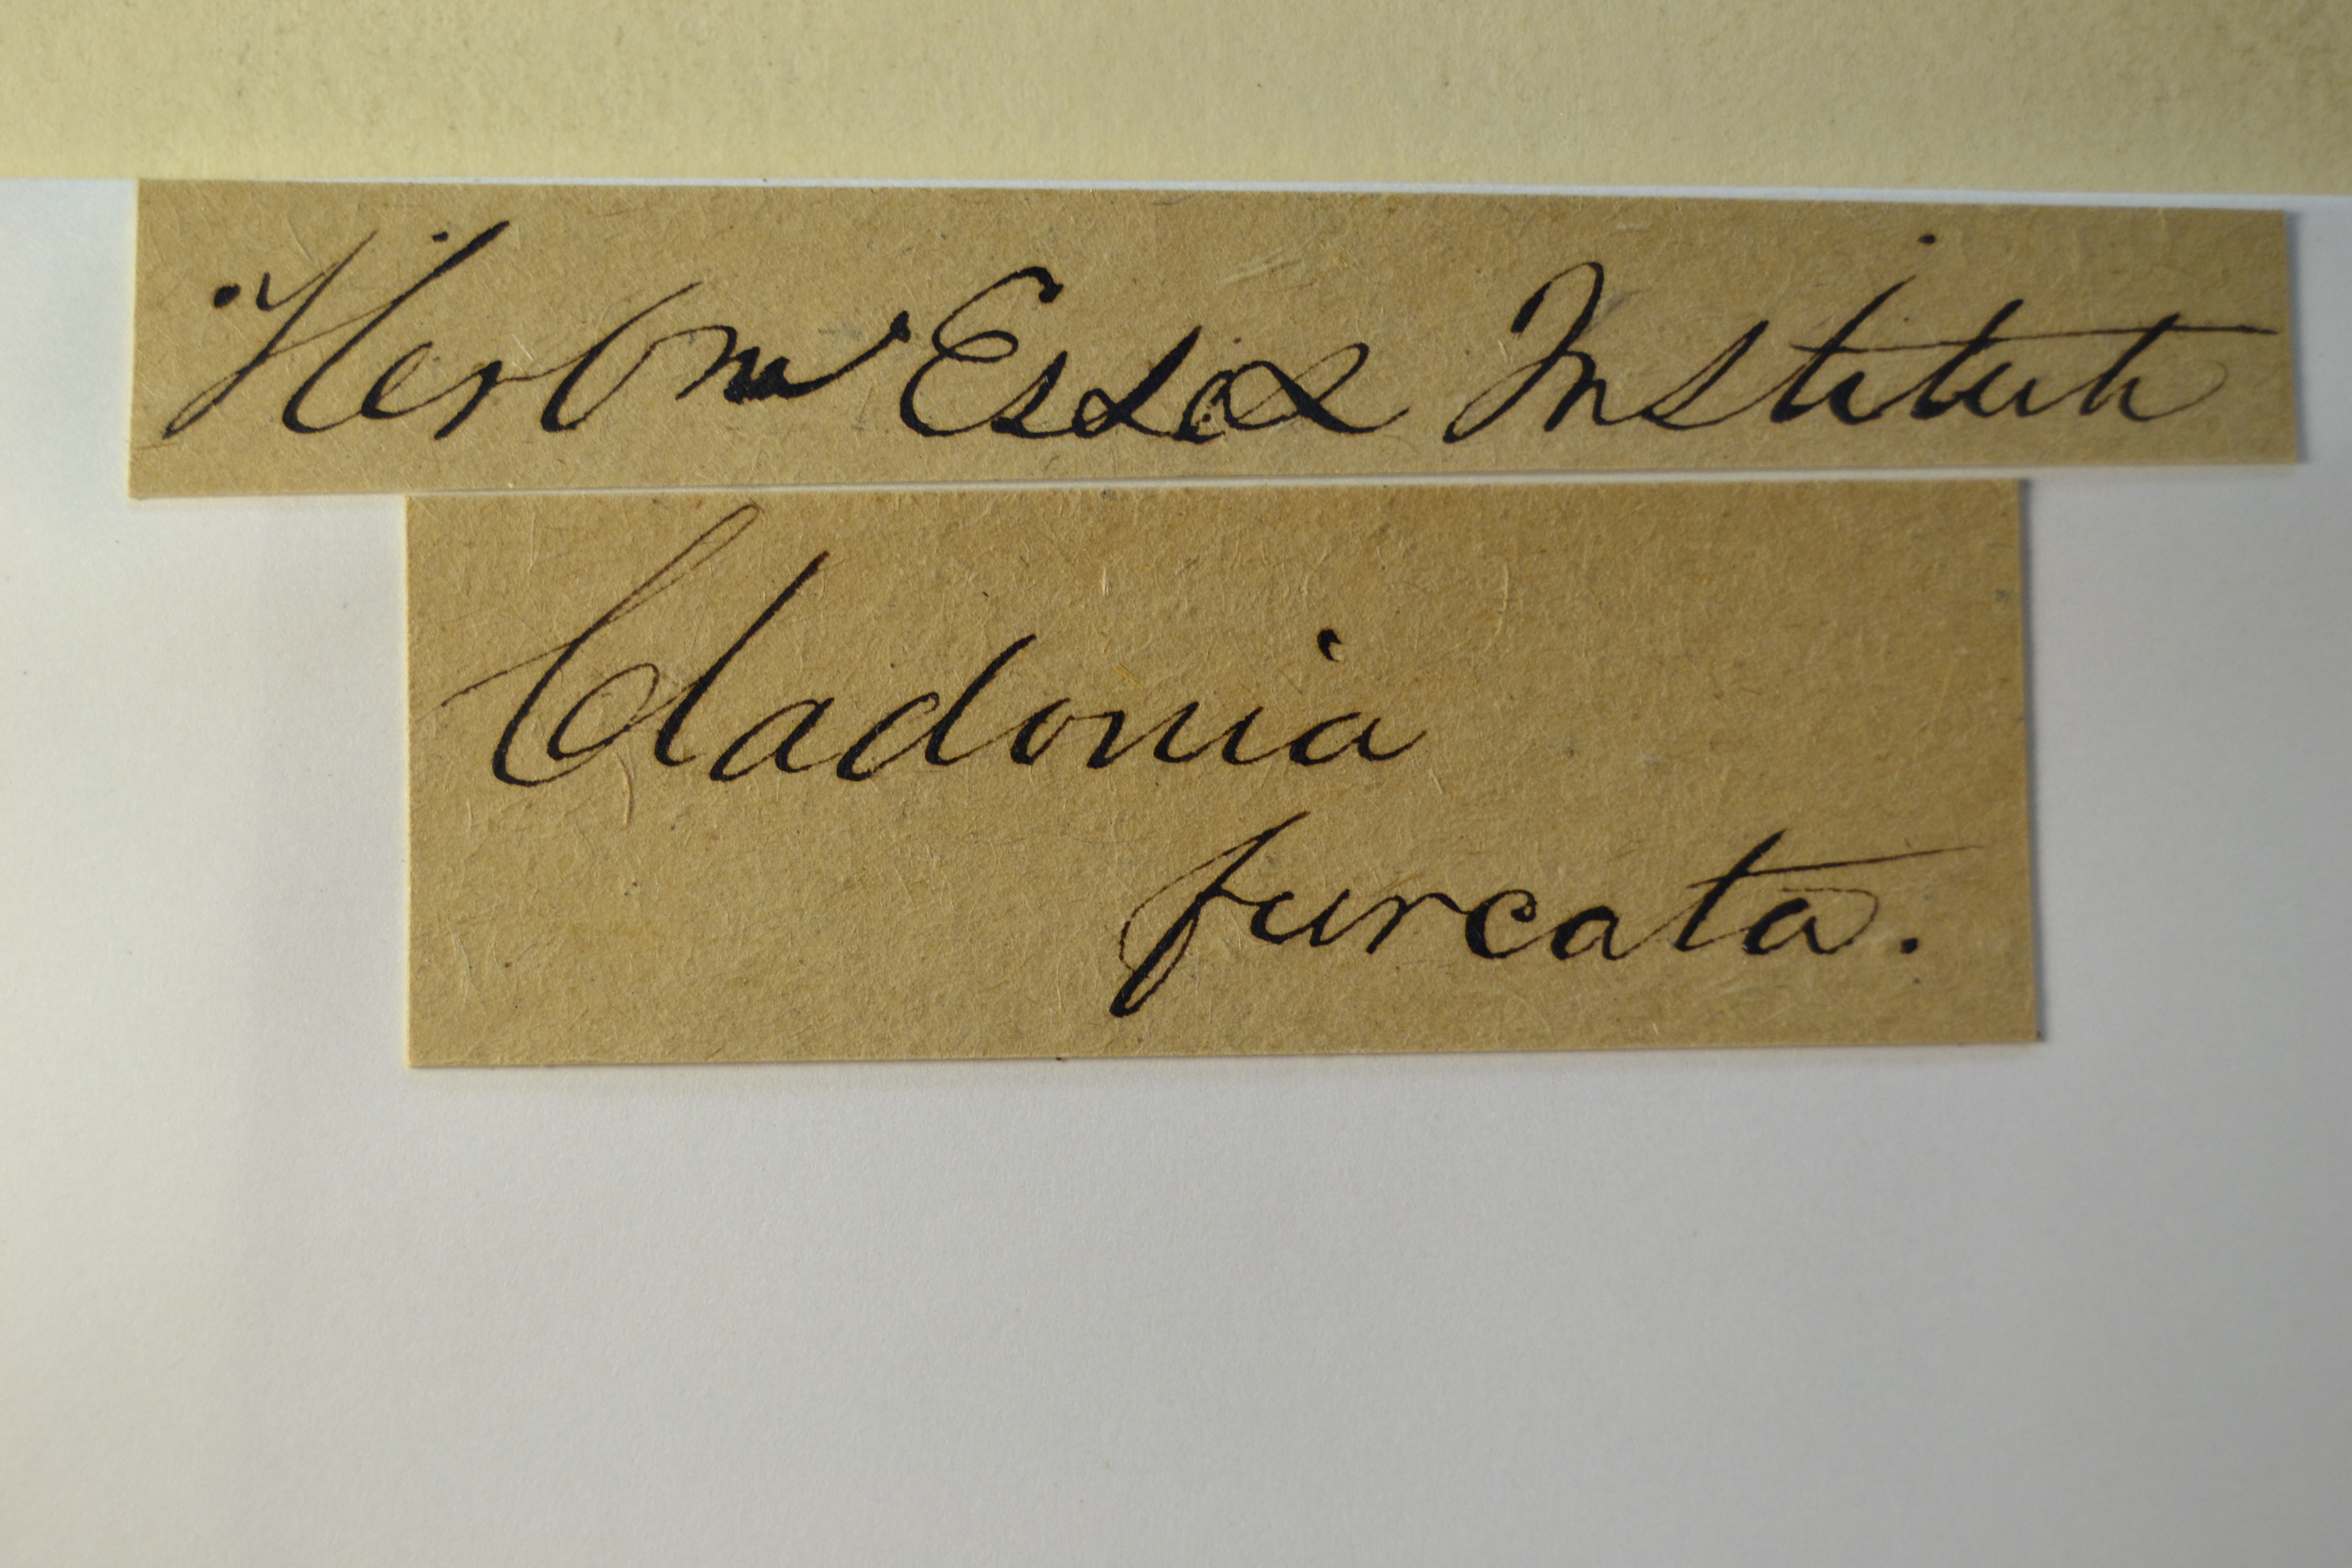 Herbm Essex Institute
Cladonia
furcata.